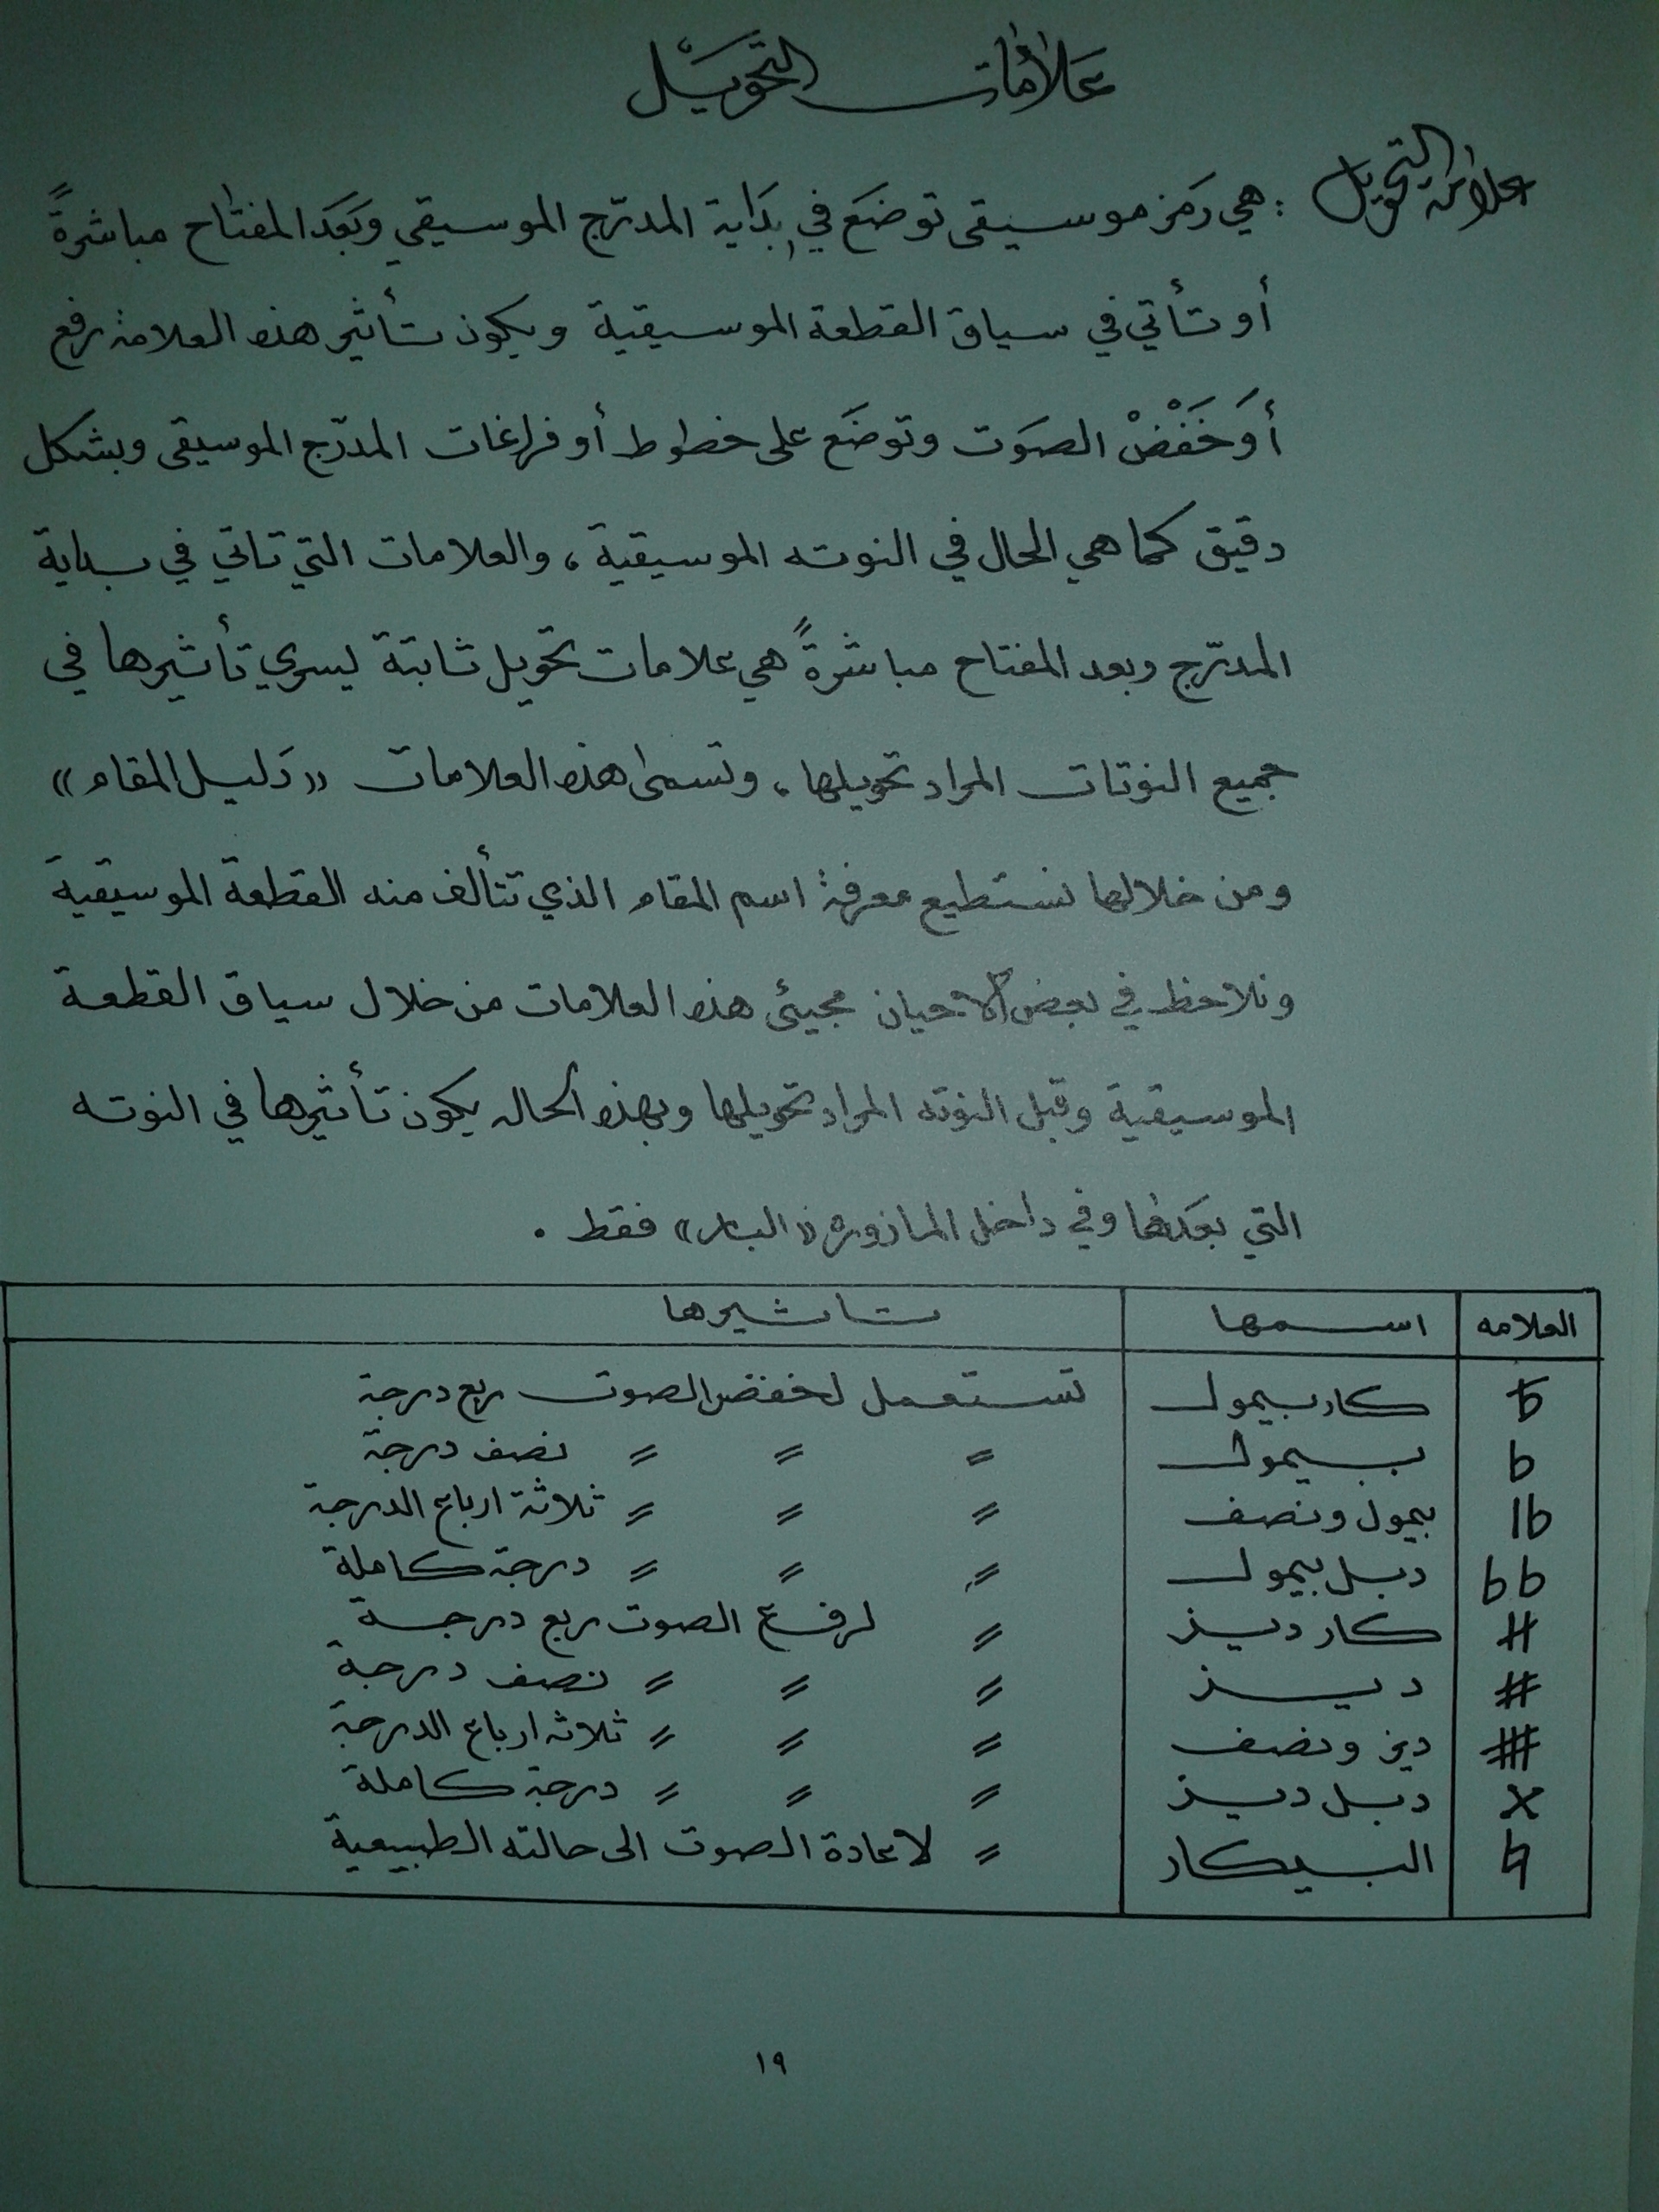 علامات التحويل
علامة التحويل : هي رَمز موسيقى توضَع في بدَاية المدرّج الموسيقي وبَعَد المفتاح مباشرةً
أو تأتي في سياق القطعة الموسيقية ويكون تأثير هذه العلامة رفع
أوَ خَفْضْ الصَوت وتوضَع على خطوط أو فراغات المدرّج الموسيقى وبشكل
دقيق كما هي الحال في النوته الموسيقية ، والعلامات التي تاتي في بداية
المدرّج وبعد المفتاح مباشرةً هي علامات تحويل ثابتة يسري تأثيرها في
جميع النوتات المراد تحويلها ، وتسمى هذه العلامات «دَليل المقام»
ومن خلالها نستطيع معرفة اسم المقام الذي تتألف منه القطعة الموسيقية
ونلاحظ في بعض الأحيان مجيئ هذه العلامات من خلال سياق القطعة
الموسيقية وقبل النوته المراد تحويلها وبهذه الحاله يكون تأثيرها في النوته
التي بعَدها وفي داخل المازوره «البار» فقط .
العلامه اسمها تاثيرها
كار بيمول تستعمل لخفض الصوت ربع درجة
b بيمول 〃 〃 〃 نصف درجة
اb بيمول ونصف 〃 〃 〃 ثلاثة ارباع الدرجة
bb دبل بيمول 〃 〃 〃 درجة كاملة
كار ديز 〃 لرفع الصوت ربع درجة
# ديز 〃 〃 〃 نصف درجة
ديز ونصف 〃 〃 〃 ثلاثه ارباع الدرجة
x دبل ديز 〃 〃 〃 درجة كاملة
♮ البيكار 〃 لاعادة الصوت الى حالته الطبيعية
١٩